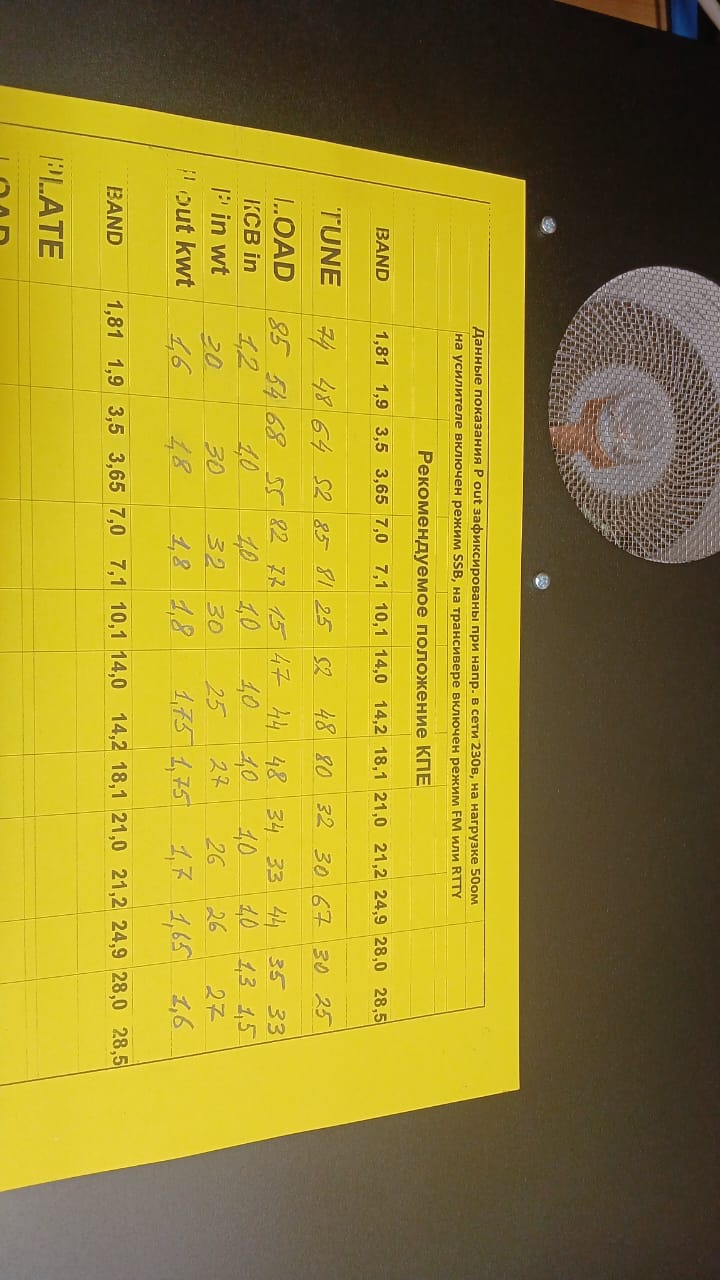 Данные показания P out зафиксированы при напр. в сети 230в, на нагрузке 50ом
на усилителе включен режим SSB, на трансивере включен режим FM или RTTY
Рекомендуемое положение КПЕ
BAND 1,81 1,9 3,5 3,65 7,0 7,1 10,1 14,0 14,2 18,1 21,0 21,2 24,9 28,0 28,5
TUNE 74 48 64 52 85 81 25 52 48 80 32 30 67 30 25
LOAD 85 54 68 55 82 77 15 47 44 48 34 33 44 35 33
КСВ in 1,2 1,0 1,0 1,0 1,0 1,0 1,0 1,0 1,3 1,5
P in wt 20 30 32 30 25 27 26 26 27
P out kwt 1,6 1,8 1,8 1,8 1,75 1,75 1,7 1,65 1,6
BAND 1,81 1,9 3,5 3,65 7,0 7,1 10,1 14,0 14,2 18,1 21,0 21,2 24,9 28,0 28,5
PLATE
LOAD